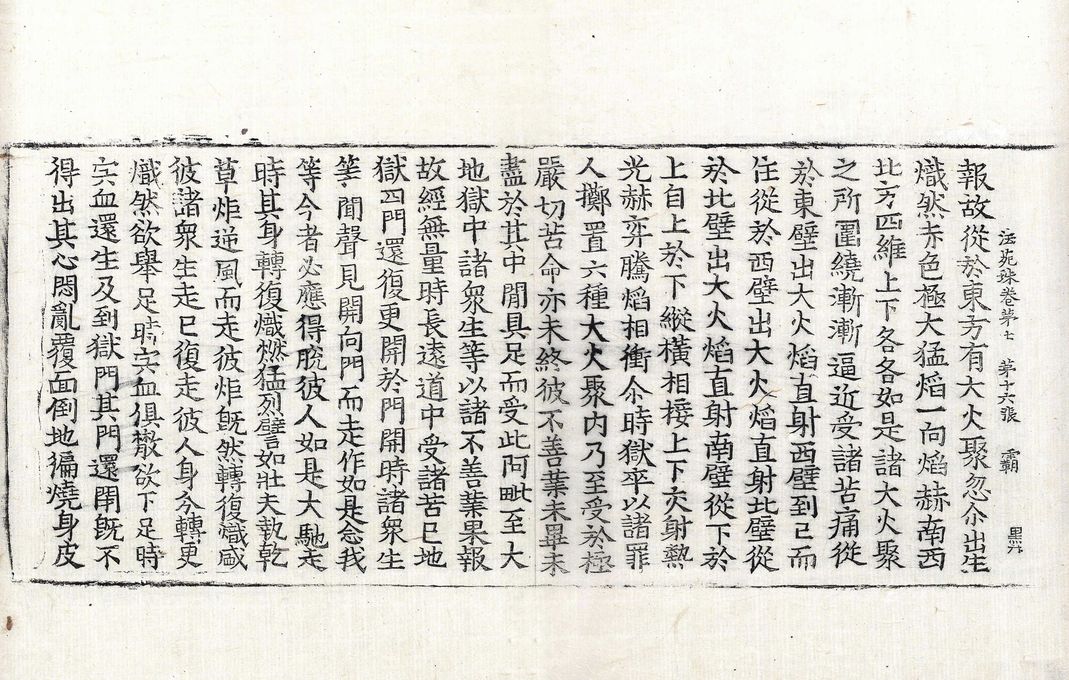 法苑珠卷第七 第十六張 霸
報故從於東方有大火聚忽尒出生
熾然赤色極大猛焰一向焰赫南西
北方四維上下各各如是諸大火聚
之所圍繞漸漸逼近受諸苦痛從
於東壁出大火焰直射西壁到已而
住從於西壁出大火焰直射北壁從
於北壁出大火焰直射南壁從下於
上自上於下縱橫相接上下交射熱
光赫弈騰焰相衝尒時獄卒以諸罪
人擲置六種大火聚内乃至受於極
嚴切苦命亦未終彼不善業未畢未
盡於其中間具足而受此阿毗至大
地獄中諸衆生等以諸不善業果報
故經無量時長遠道中受諸苦已地
獄四門還復更開於門開時諸衆生
等聞聲見開向門而走作如是念我
等今者必應得脫彼人如是大馳走
時其身轉復熾燃猛烈譬如壯夫執乾
草炬逆風而走彼炬旣然轉復熾盛
彼諸衆生走已復走彼人身分轉更
熾然欲舉足時宍血俱散欲下足時
宍血還生及到獄門其門還閇旣不
得出其心悶亂覆面倒地徧燒身皮